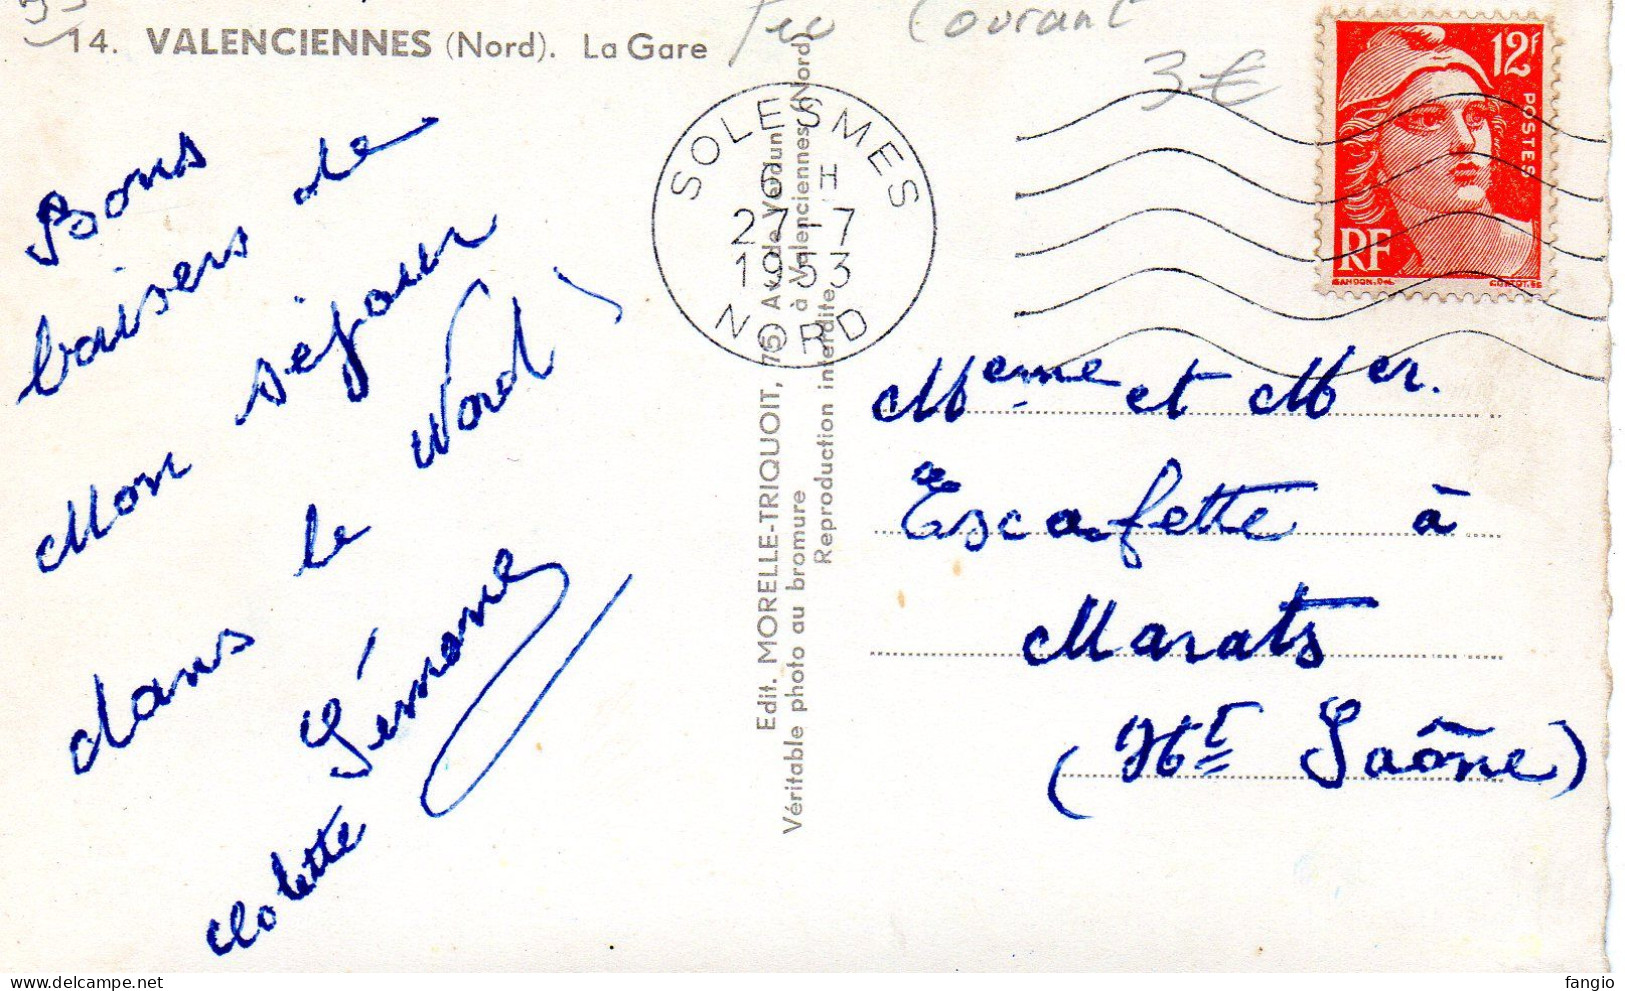 14. VALENCIENNES (Nord). La Gare
Peu Courant
3 €
12f
POSTES
RF
GANDON.DEL
CORTOT.SC
SOLESMES
6 H
27-7
1953
NORD
Edit. MORELLE-TRIQUOIT, 75, Av. de Verdun
à Valenciennes (Nord)
Véritable photo au bromure
Reproduction interdite
Bons
baisers de
Mon séjour
dans le Nord
Sémone
Colette
Meme et Mer.
Escafette à
Marats
(Hte Saône)
fangio